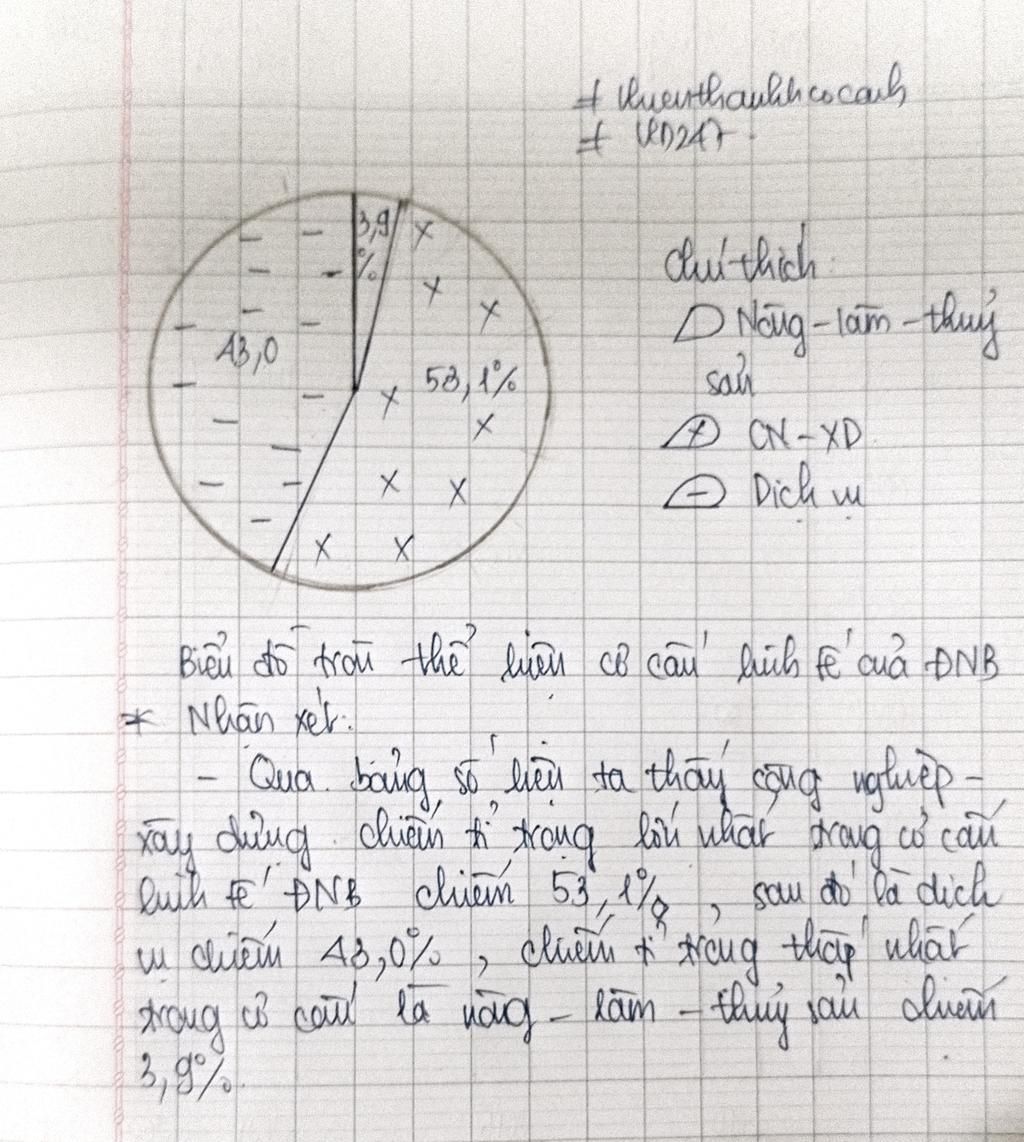 # khuenthanhhcocanh
# VD247
3,9
%
43,0
53,1%
Chú thích:
Nông-lâm-thuỷ
sản
+ CN-XD
- Dịch vụ
Biểu đồ tròn thể hiện cơ cấu kinh tế của ĐNB
* Nhận xét:
- Qua bảng số liệu ta thấy công nghiệp -
xây dựng chiếm tỉ trọng lớn nhất trong cơ cấu
kinh tế ĐNB chiếm 53,1%, sau đó là dịch
vụ chiếm 43,0%, chiếm tỉ trọng thấp nhất
trong cơ cấu là nông - lâm - thuỷ sản chiếm
3,9%.